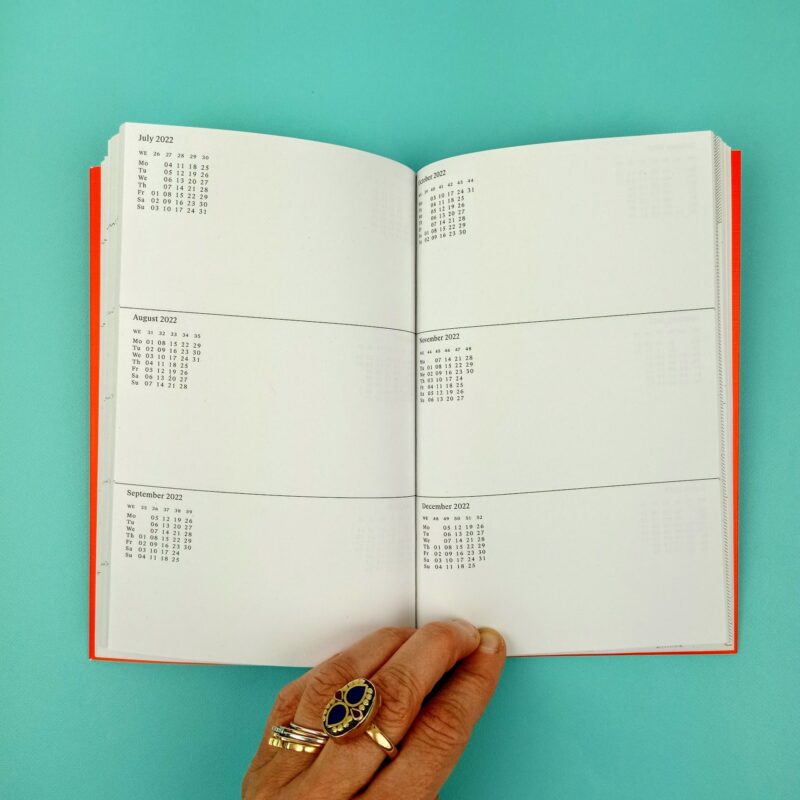 July 2022
WE 26 27 28 29 30
Mo 04 11 18 25
Tu 05 12 19 26
We 06 13 20 27
Th 07 14 21 28
Fr 01 08 15 22 29
Sa 02 09 16 23 30
Su 03 10 17 24 31
August 2022
WE 31 32 33 34 35
Mo 01 08 15 22 29
Tu 02 09 16 23 30
We 03 10 17 24 31
Th 04 11 18 25
Fr 05 12 19 26
Sa 06 13 20 27
Su 07 14 21 28
September 2022
WE 35 36 37 38 39
Mo 05 12 19 26
Tu 06 13 20 27
We 07 14 21 28
Th 01 08 15 22 29
Fr 02 09 16 23 30
Sa 03 10 17 24
Su 04 11 18 25
October 2022
WE 39 40 41 42 43 44
Mo 03 10 17 24 31
Tu 04 11 18 25
We 05 12 19 26
Th 06 13 20 27
Fr 07 14 21 28
Sa 01 08 15 22 29
Su 02 09 16 23 30
November 2022
WE 44 45 46 47 48
Mo 07 14 21 28
Tu 01 08 15 22 29
We 02 09 16 23 30
Th 03 10 17 24
Fr 04 11 18 25
Sa 05 12 19 26
Su 06 13 20 27
December 2022
WE 48 49 50 51 52
Mo 05 12 19 26
Tu 06 13 20 27
We 07 14 21 28
Th 01 08 15 22 29
Fr 02 09 16 23 30
Sa 03 10 17 24 31
Su 04 11 18 25